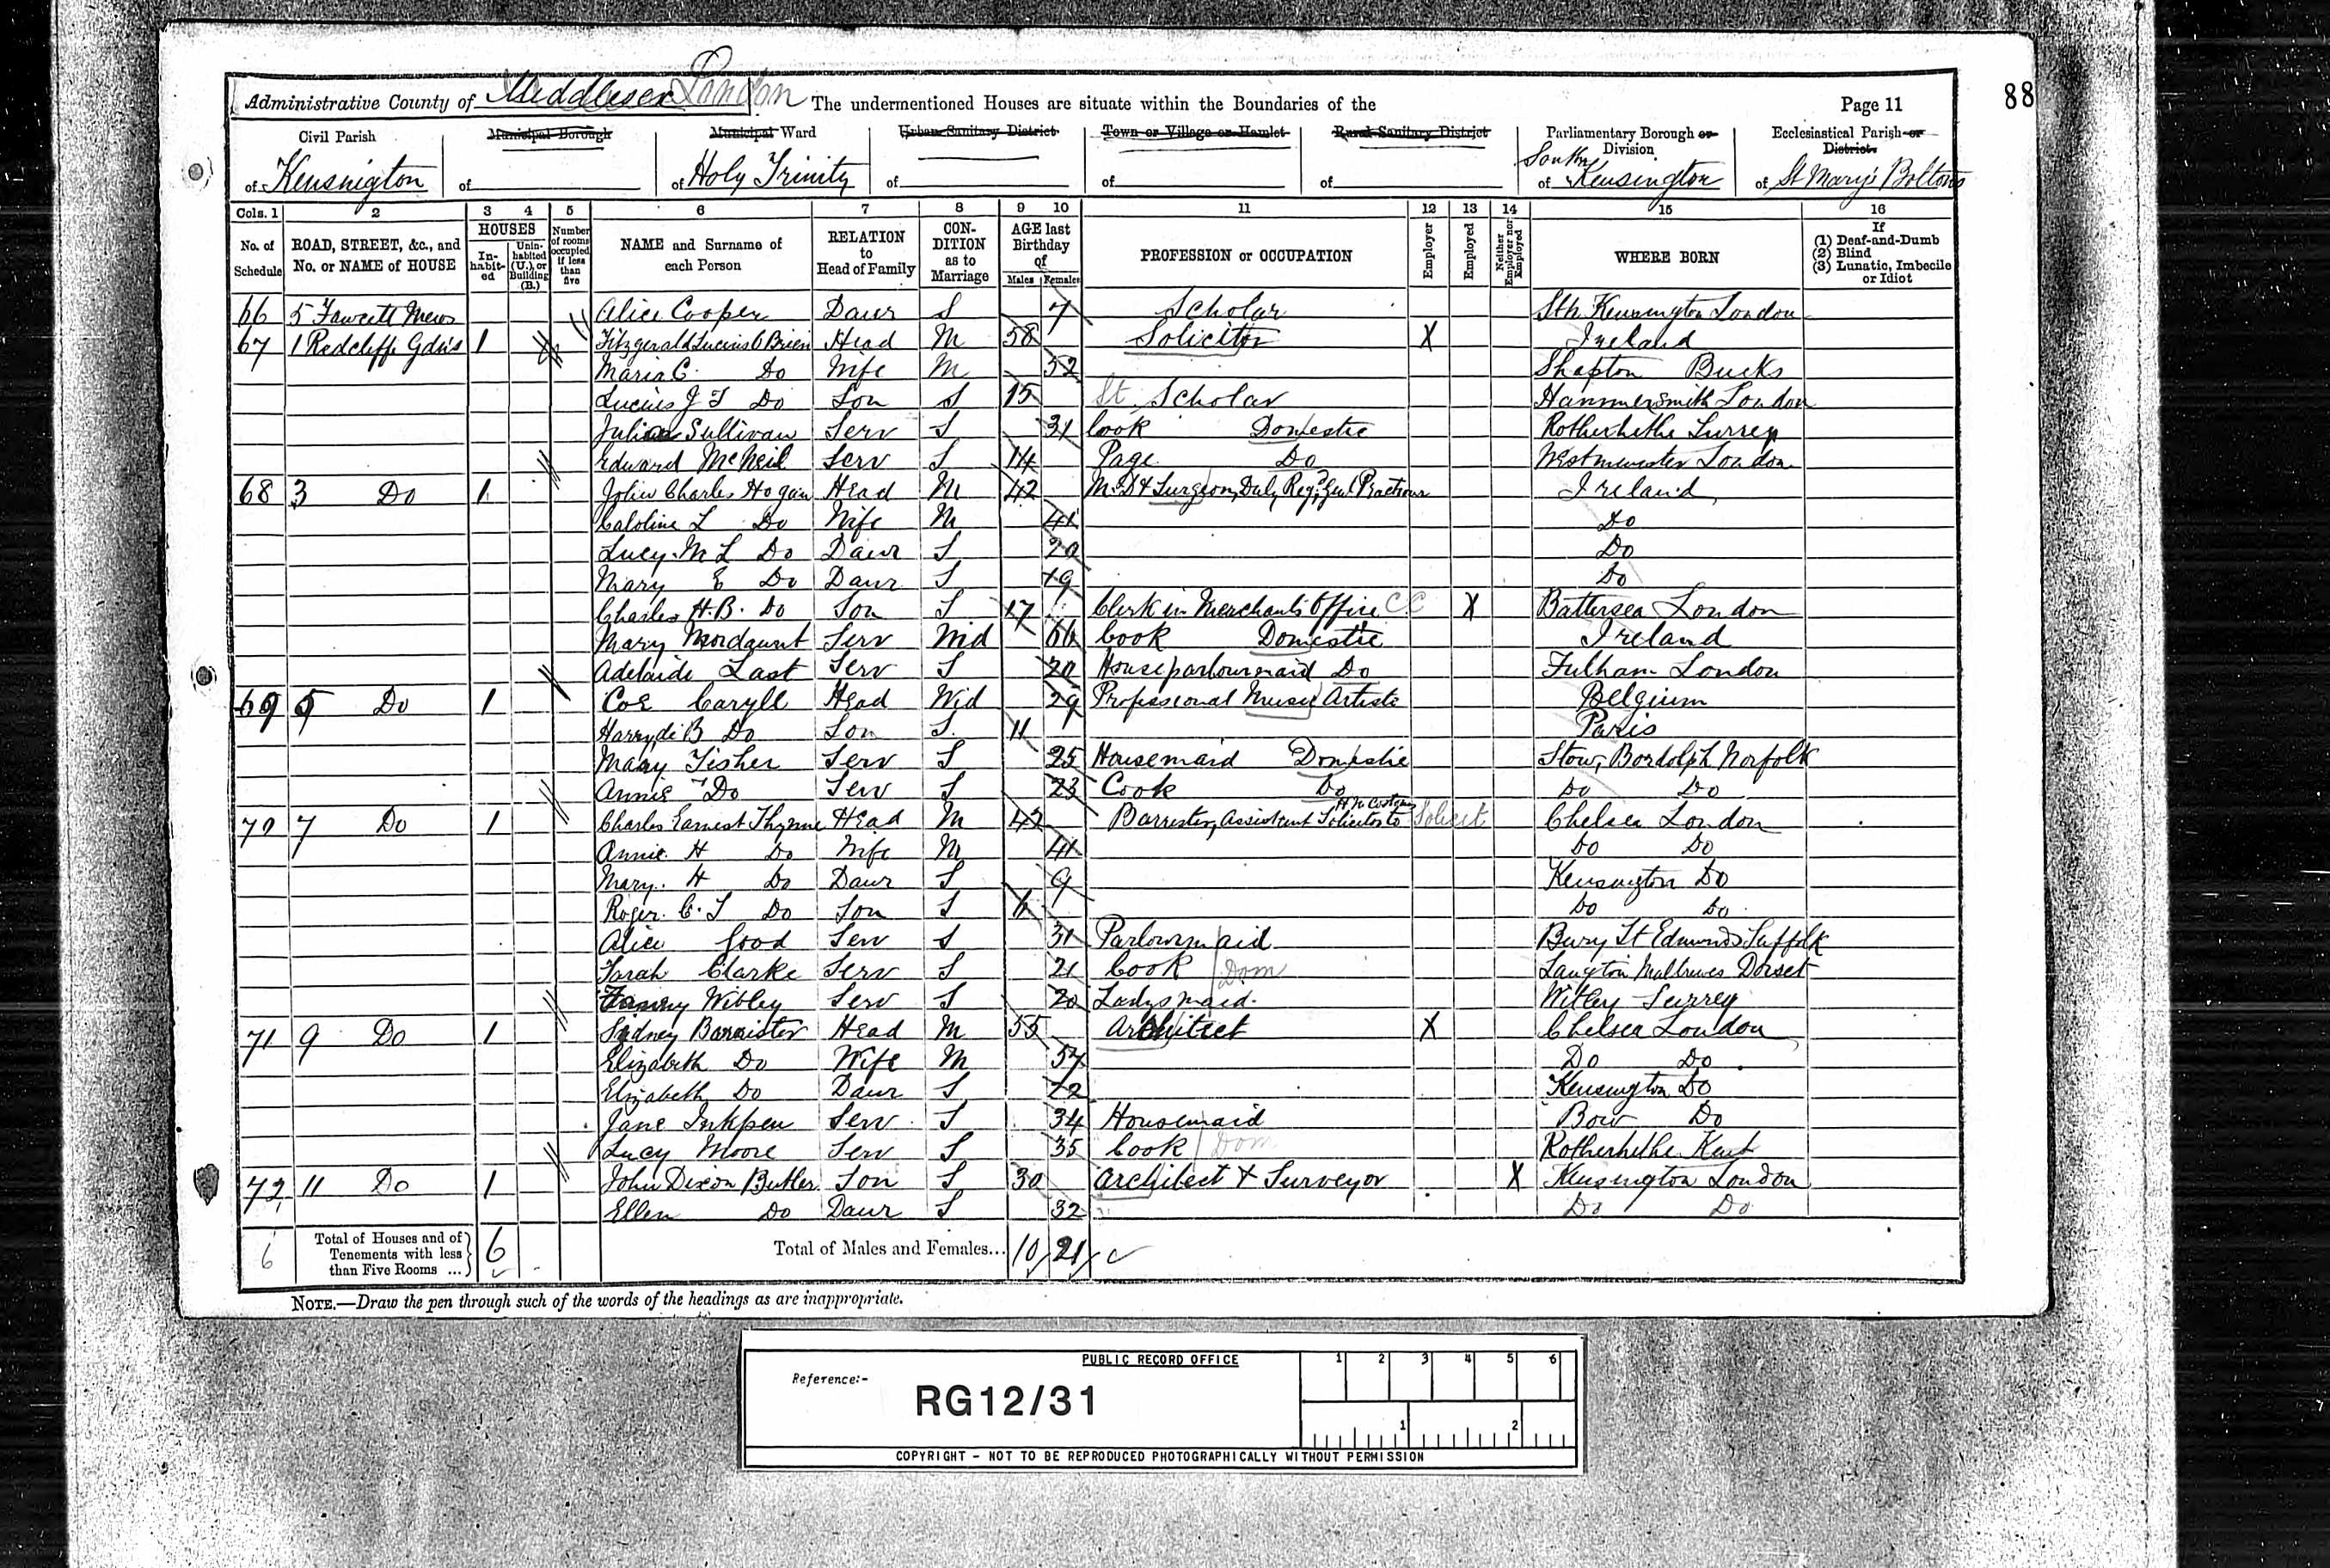 88
Administrative County of Middlesex London The undermentioned Houses are situate within the Boundaries of the Page 11
Civil Parish of Kensington
Municipal Borough of
Municipal Ward of Holy Trinity
Urban Sanitary District of
Town or Village or Hamlet of
Rural Sanitary District of
Parliamentary Borough or Division of South Kensington
Ecclesiastical Parish or District of St Mary's Boltons
Cols. 1 2 3 4 5 6 7 8 9 10 11 12 13 14 15 16
No. of Schedule
ROAD, STREET, &c., and No. or NAME of HOUSE
HOUSES
In-habit-ed
Unin-habited (U.), or Building (B.)
Number of rooms occupied if less than five
NAME and Surname of each Person
RELATION to Head of Family
CON-DITION as to Marriage
AGE last Birthday of
Males Females
PROFESSION or OCCUPATION
Employer
Employed
Neither Employer nor Employed
WHERE BORN
If (1) Deaf-and-Dumb (2) Blind (3) Lunatic, Imbecile or Idiot
66 5 Fawcett Mews Alice Cooper Daur S 7 Scholar Sth Kensington London
67 1 Redcliffe Gdns 1 Fitzgerald Lucius O'Brien Head M 58 Solicitor X Ireland
Maria C. Do Wife M 52 Shapton Bucks
Lucius J F Do Son S 15 St. Scholar Hammersmith London
Julia Sullivan Serv S 31 Cook Domestic Rotherhithe Surrey
Edward McNeil Serv S 14 Page Do Westminster London
68 3 Do 1 John Charles Hogan Head M 42 M.D. & Surgeon, Duly Regd, Genl Practioner Ireland
Caloline L Do Wife M 41 Do
Lucy M L Do Daur S 20 Do
Mary E Do Daur S 19 Do
Charles H.B. Do Son S 17 Clerk in Merchants Office CC X Battersea London
Mary Mordaunt Serv Wid 66 Cook Domestic Ireland
Adelaide Last Serv S 20 Houseparlourmaid Do Fulham London
69 5 Do 1 Coe Caryll Head Wid 29 Professional Music Artiste Belgium
Harry di B Do Son S. 11 Paris
Mary Fisher Serv S 25 Housemaid Domestic Stow, Bardolph Norfolk
Annie Do Serv S 23 Cook Do Do Do
70 7 Do 1 Charles Earnest Thynne Head M 42 Barrister, Assistant Solicitor to H M Customs Solicit Chelsea London
Annie H Do Wife M 41 Do Do
Mary. H Do Daur S 9 Kensington Do
Roger. C. T Do Son S 6 Do Do
Alice Good Serv S 31 Parlourmaid Bury St Edmunds Suffolk
Sarah Clarke Serv S 21 Cook Dom Langton Maltravers Dorset
Fanny Witley Serv S 20 Ladysmaid. Witley Surrey
71 9 Do 1 Sydney Bannister Head M 55 Architect X Chelsea London
Elizabeth Do Wife M 57 Do Do
Elizabeth Do Daur S 22 Kensington Do
Jane Inkpen Serv S 34 Housemaid Bow Do
Lucy Moore Serv S 35 Cook Dom Rotherhithe Kent
72 11 Do 1 John Dixon Butler Son S 30 Architect & Surveyor X Kensington London
Ellen Do Daur S 32 Do Do
6 Total of Houses and of Tenements with less than Five Rooms ... 6 Total of Males and Females... 10 21
NOTE.—Draw the pen through such of the words of the headings as are inappropriate.
PUBLIC RECORD OFFICE
1 2 3 4 5 6
Reference:-
RG12/31
1 2
COPYRIGHT - NOT TO BE REPRODUCED PHOTOGRAPHICALLY WITHOUT PERMISSION